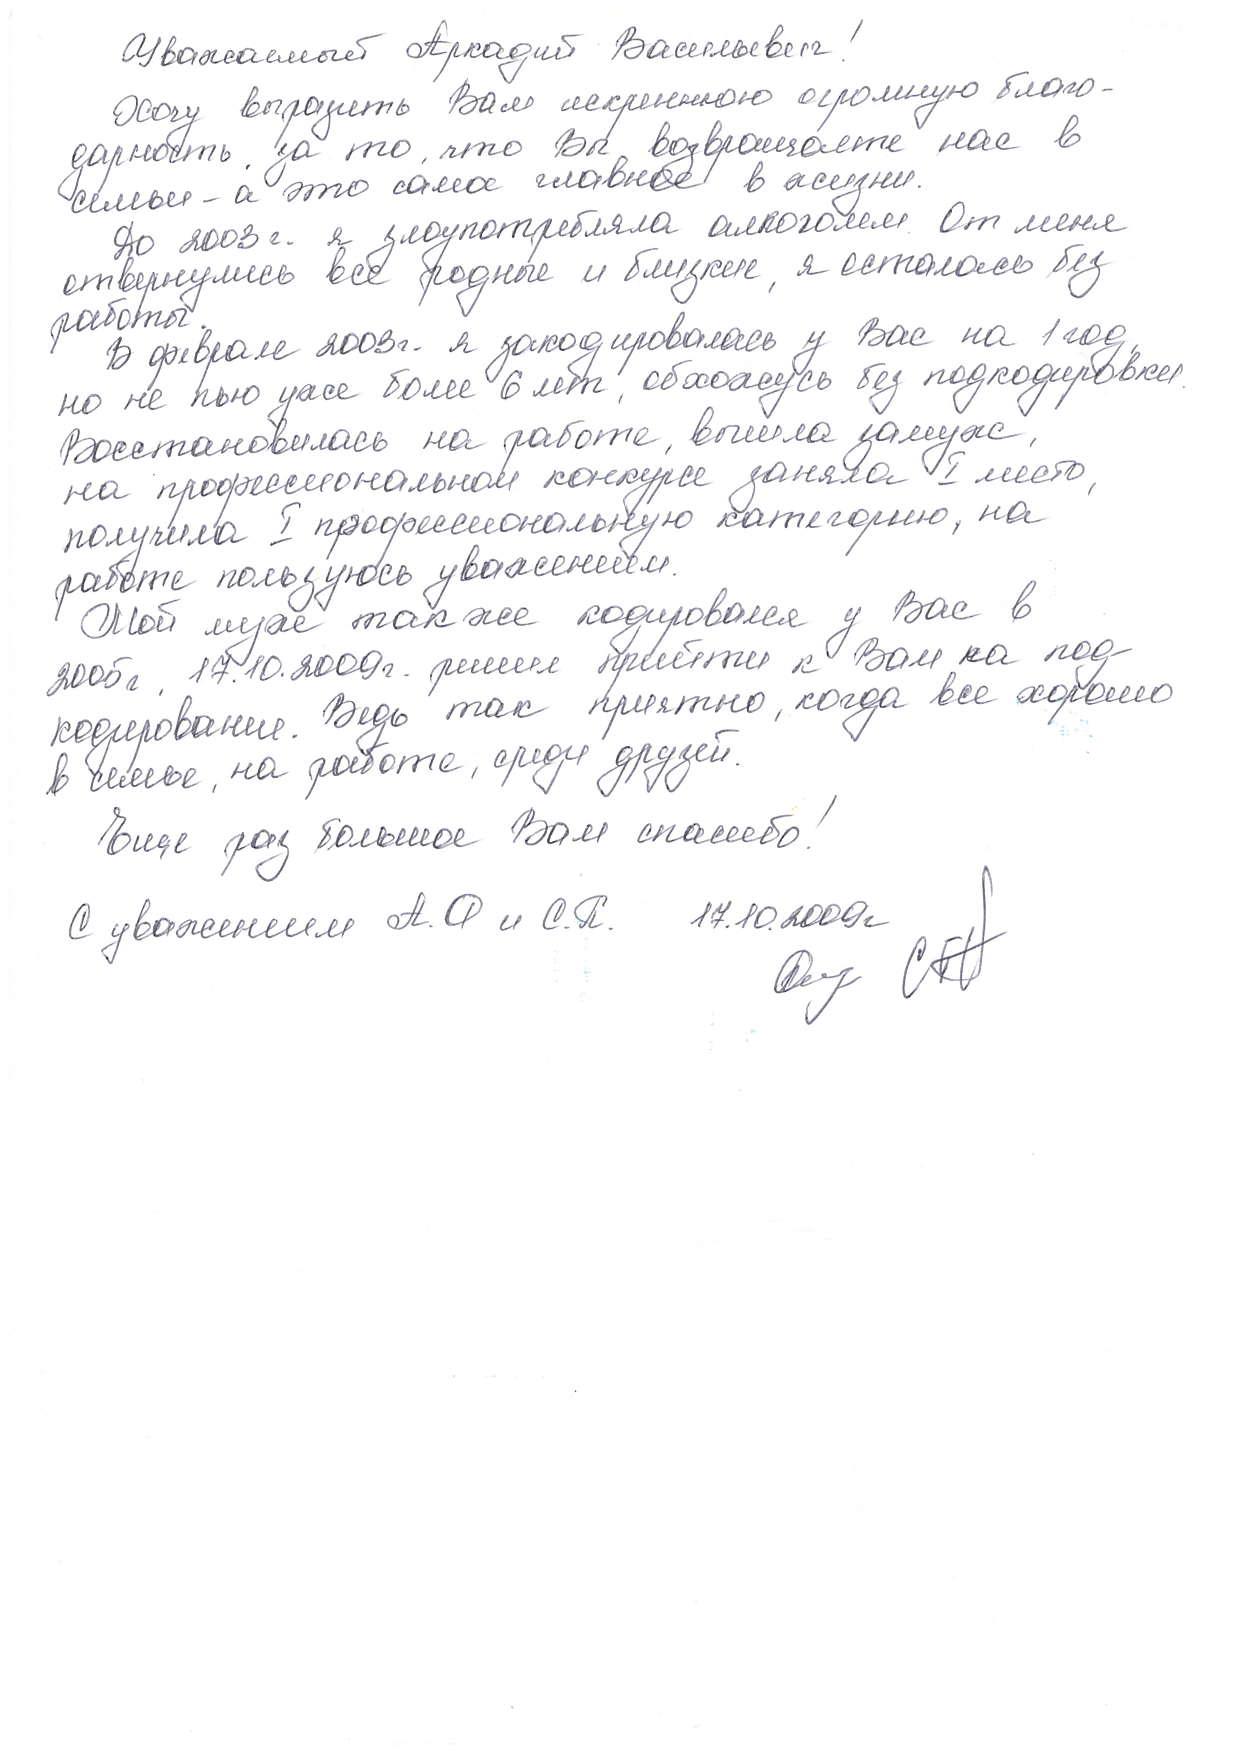 Уважаемый Аркадий Васильевич!
Хочу выразить Вам искреннюю огромную благо-
дарность, за то, что Вы возвращаете нас в
семьи - а это самое главное в жизни.
До 2003г. я злоупотребляла алкоголем. От меня
отвернулись все родные и близкие, я осталась без
работы.
В феврале 2003г. я закодировалась у Вас на 1 год,
но не пью уже более 6 лет, обхожусь без подкодировки.
Восстановилась на работе, вышла замуж,
на профессиональном конкурсе заняла I место,
получила I профессиональную категорию, на
работе пользуюсь уважением.
Мой муж также кодировался у Вас в
2005г, 17.10.2009г. решил прийти к Вам на под-
кодирование. Ведь так приятно, когда все хорошо
в семье, на работе, среди друзей.
Еще раз большое Вам спасибо!
С уважением А.Ф и С.П. 17.10.2009г